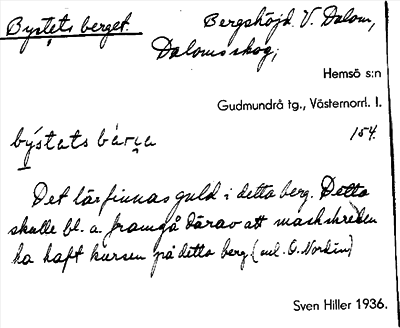 Bystets berget.
Bergshöjd V. Dalom,
Dalomsskog;
Hemsö s:n
Gudmundrå tg., Västernorrl. l.
býstets bárɩa
154.
Det lär finnas guld i detta berg. Detta
skulle bl. a. framgå därav att maskskreden
ha haft kursen på detta berg (enl. O. Nordin)
Sven Hiller 1936.